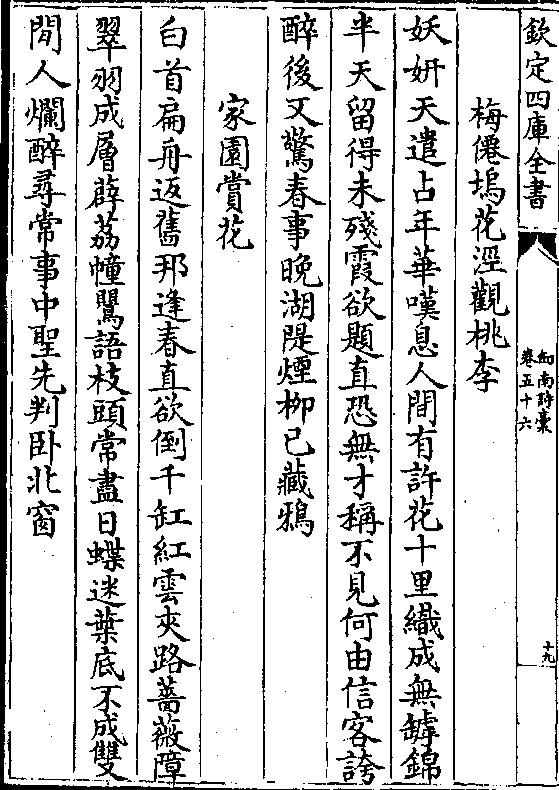 欽定四庫全書
劒南詩藁
卷五十六
十九
梅僊塢花涇觀桃李
妖妍天遣占年華嘆息人間有許花十里織成無罅錦
半天留得未殘霞欲題直恐無才稱不見何由信客誇
醉後又驚春事晚湖隄煙柳已藏鴉
家園賞花
白首扁舟返舊邦逢春直欲倒千缸紅雲夾路薔薇障
翠羽成層薜荔幢鸎語枝頭常盡日蝶迷葉底不成雙
閒人爛醉尋常事中聖先判卧北窗